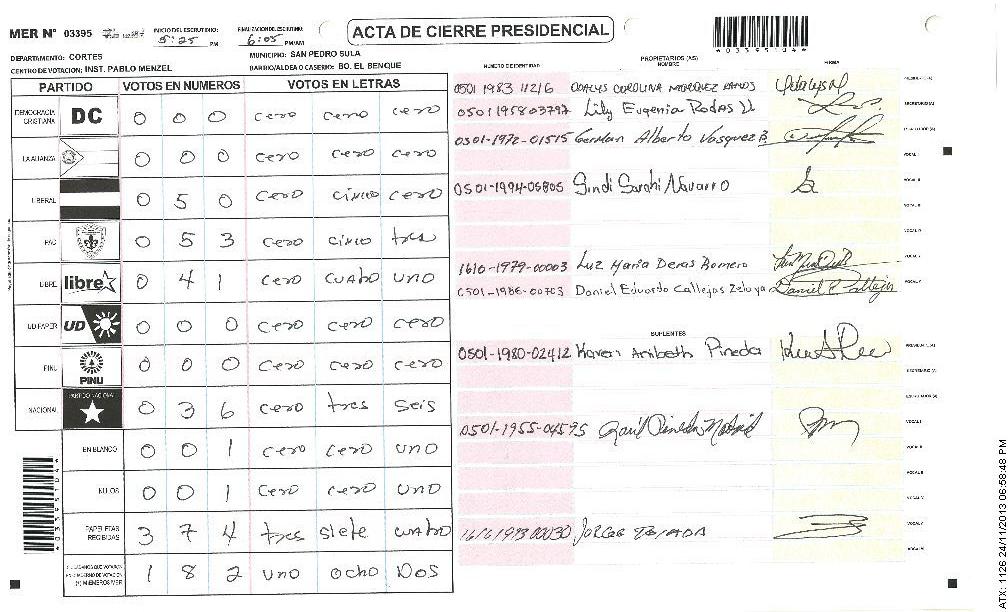 MER N° 03395
INICIO DEL ESCRUTINIO: 5:25 PM
FINALIZACION DEL ESCRUTINIO: 6:05 PM/AM
ACTA DE CIERRE PRESIDENCIAL
DEPARTAMENTO: CORTES
MUNICIPIO: SAN PEDRO SULA
CENTRO DE VOTACION: INST. PABLO MENZEL
BARRIO/ALDEA O CASERIO: BO. EL BENQUE
PARTIDO VOTOS EN NUMEROS VOTOS EN LETRAS
DEMOCRACIA CRISTIANA DC 0 0 0 cero cero cero
LA ALIANZA 0 0 0 cero cero cero
LIBERAL 0 5 0 cero cinco cero
PAC 0 5 3 cero cinco tres
LIBRE libre 0 4 1 cero cuatro uno
UD PAPER UD 0 0 0 cero cero cero
PINU PINU 0 0 0 cero cero cero
NACIONAL PARTIDO NACIONAL 0 3 6 cero tres seis
EN BLANCO 0 0 1 cero cero uno
NULOS 0 0 1 cero cero uno
PAPELETAS RECIBIDAS 3 7 4 tres siete cuatro
CIUDADANOS QUE VOTARON EN CUADERNO DE VOTACION (+) MIEMBROS MER 1 8 2 uno ocho Dos
NUMERO DE IDENTIDAD
PROPIETARIOS (AS)
NOMBRE
FIRMA
0501 1983 11216 ODALYS CAROLINA MARQUEZ RAMOS
0501195803797 Lily Eugenia Rodas
0501-1972-01515 German Alberto Vasquez B.
0501-1994-05805 Sindi Sarahi Navarro
1610-1979-00003 Luz Maria Deras Romero
0501-1986-00703 Daniel Eduardo Callejas Zelaya
SUPLENTES
0501-1980-02412 Karen Anibeth Pineda
0501-1955-04595 Raul Pineda Madrid
1616199300030 JORGE TEJADA
*03395104*
ATX: 1126 24/11/2013 06:58:48 PM